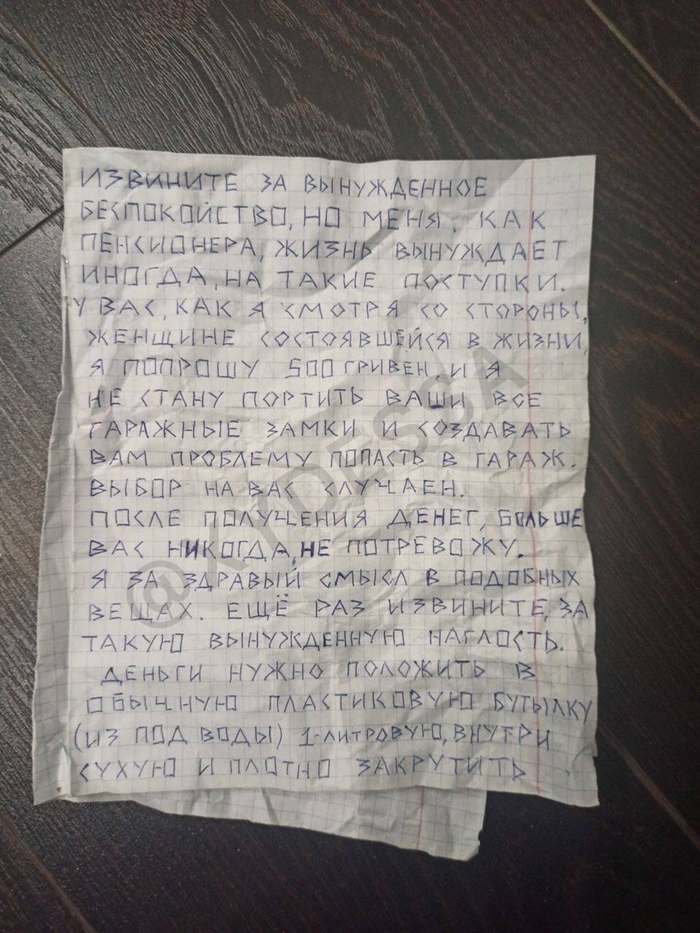 ИЗВИНИТЕ ЗА ВЫНУЖДЕННОЕ
БЕСПОКОЙСТВО, НО МЕНЯ, КАК
ПЕНСИОНЕРА, ЖИЗНЬ ВЫНУЖДАЕТ
ИНОГДА, НА ТАКИЕ ПОСТУПКИ.
У ВАС, КАК Я СМОТРЯ СО СТОРОНЫ,
ЖЕНЩИНЕ СОСТОЯВШЕЙСЯ В ЖИЗНИ,
Я ПОПРОШУ 500 ГРИВЕН И Я
НЕ СТАНУ ПОРТИТЬ ВАШИ ВСЕ
ГАРАЖНЫЕ ЗАМКИ И СОЗДАВАТЬ
ВАМ ПРОБЛЕМУ ПОПАСТЬ В ГАРАЖ.
ВЫБОР НА ВАС СЛУЧАЕН.
ПОСЛЕ ПОЛУЧЕНИЯ ДЕНЕГ, БОЛЬШЕ
ВАС НИКОГДА, НЕ ПОТРЕВОЖУ.
Я ЗА ЗДРАВЫЙ СМЫСЛ В ПОДОБНЫХ
ВЕЩАХ. ЕЩЁ РАЗ ИЗВИНИТЕ, ЗА
ТАКУЮ ВЫНУЖДЕННУЮ НАГЛОСТЬ.
ДЕНЬГИ НУЖНО ПОЛОЖИТЬ В
ОБЫЧНУЮ ПЛАСТИКОВУЮ БУТЫЛКУ
(ИЗ ПОД ВОДЫ) 1-ЛИТРОВУЮ, ВНУТРИ
СУХУЮ И ПЛОТНО ЗАКРУТИТЬ